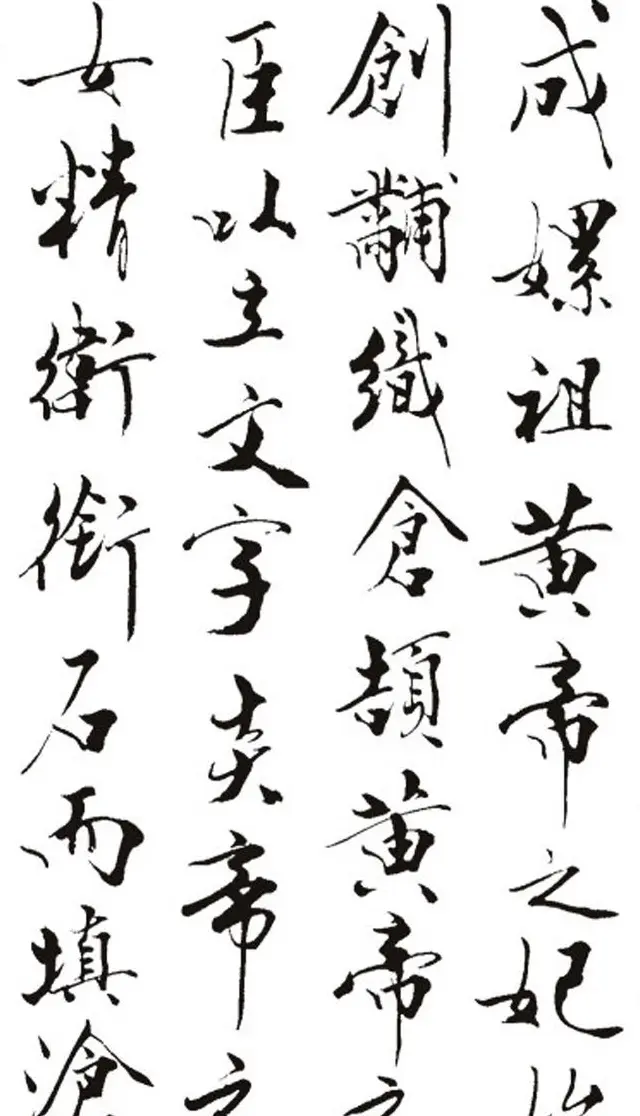 成嫘祖黄帝之妃
創黼織倉頡黄帝之
臣以主文字炎帝之
女精衛銜石而填滄